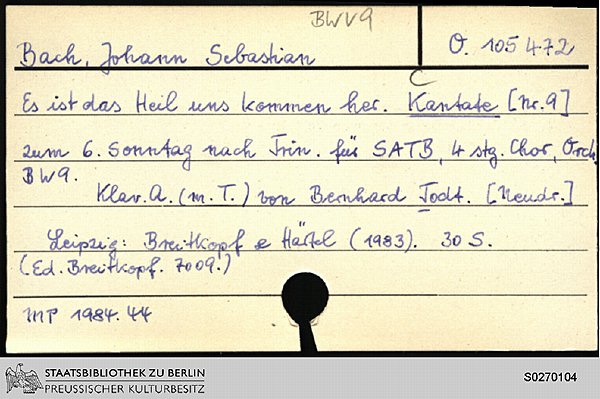 BWV9
Bach, Johann Sebastian
O. 105 472
Es ist das Heil uns kommen her. Kantate [Nr. 9]
zum 6. Sonntag nach Trin. für SATB, 4 stg. Chor, Orch.
BW9.
Klav.A. (m. T.) von Bernhard Todt. [Neudr.]
Leipzig: Breitkopf & Härtel (1983). 30 S.
(Ed. Breitkopf. 7009.)
MP 1984.44
STAATSBIBLIOTHEK ZU BERLIN
PREUSSISCHER KULTURBESITZ
S0270104